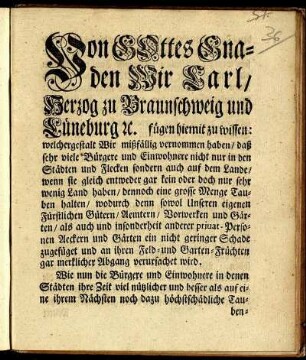 36
Von GOttes Gna-
den Wir Carl/
Herzog zu Braunschweig und
Lüneburg ꝛc. fügen hiemit zu wissen:
welchergestalt Wir mißfällig vernommen haben/ daß
sehr viele Bürgere und Einwohnere nicht nur in den
Städten und Flecken sondern auch auf dem Lande/
wenn sie gleich entweder gar kein oder doch nur sehr
wenig Land haben/ dennoch eine grosse Menge Tau-
ben halten/ wodurch denn sowol Unseren eigenen
Fürstlichen Gütern/ Aemtern/ Vorwerken und Gär-
ten/ als auch und insonderheit anderer privat-Perso-
nen Aeckern und Gärten ein nicht geringer Schade
zugefüget und an ihren Feld- und Garten-Früchten
gar merklicher Abgang verursachet wird.
Wie nun die Bürgere und Einwohnere in denen
Städten ihre Zeit viel nützlicher und besser als auf ei-
ne ihrem Nächsten noch dazu höchstschädliche Tau-
ben-